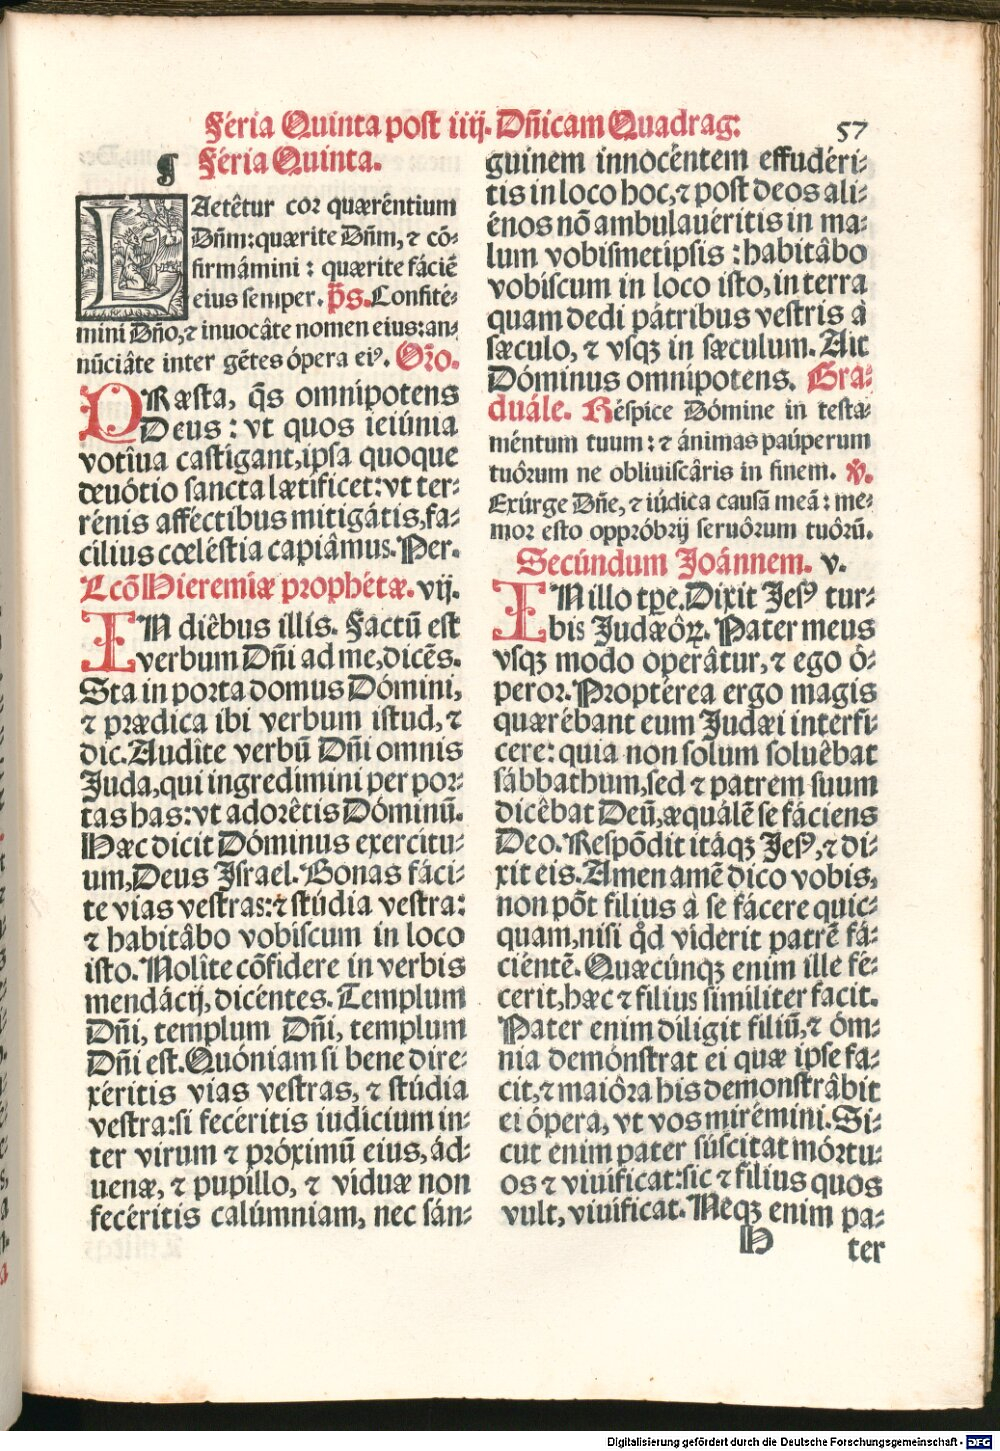 Féria Quinta post iiij. Dñicam Quadrag. 57
¶ Féria Quinta.
LAetêtur cor quæréntium
Dñm: quærite Dñm, ⁊ cō-
firmámini: quærite fáciē
eius semper. p̄s. Confité-
mini Dño, ⁊ inuocâte nomen eius: an-
nūciâte inter gētes ópera eiꝰ. Oŕo.
PRæsta, q̄s omnipotens
Deus: vt quos ieiúnia
votíua castigant, ipsa quoque
deuótio sancta lætificet: vt ter-
rénis afféctibus mitigátis, fa-
cilius cœléstia capiâmus. Per.
Lcō Hieremiæ prophétæ. vij.
IN diêbus illis. Factū est
verbum Dñi ad me, dicēs.
Sta in porta domus Dómini,
⁊ prædica ibi verbum istud, ⁊
dic. Audîte verbū Dñi omnis
Juda, qui ingredimini per por-
tas has: vt adorêtis Dóminū.
Hæc dicit Dóminus exercitu-
um, Deus Jsrael. Bonas fáci-
te vias vestras: ⁊ stúdia vestra:
⁊ habitâbo vobiscum in loco
isto. Nolîte cōfidere in verbis
mendácij, dicéntes. Templum
Dñi, templum Dñi, templum
Dñi est. Quóniam si bene dire-
xéritis vias vestras, ⁊ stúdia
vestra: si fecéritis iudícium in-
ter virum ⁊ próximū eius, ád-
uenæ, ⁊ pupíllo, ⁊ víduæ non
fecéritis calúmniam, nec sán-
guinem innocéntem effudéri-
tis in loco hoc, ⁊ post deos ali-
énos nō ambulauéritis in ma-
lum vobismetipsis: habitâbo
vobíscum in loco isto, in terra
quam dedi pátribus vestris à
sæculo, ⁊ vsqꝫ in sæculum. Ait
Dóminus omnípotens. Gra-
duále. Réspice Dómine in testa-
méntum tuum: ⁊ ánimas paúperum
tuôrum ne obliuiscâris in finem. ℣.
Exúrge Dñe, ⁊ iúdica causā meā: me-
mor esto oppróbrij seruôrum tuôrū.
Secúndum Joánnem. v.
IN illo tp̄e. Dixit Jesꝰ tur-
bis Judæôꝝ. Pater meus
vsqꝫ modo operâtur, ⁊ ego ó-
peror. Proptérea ergo magis
quærébant eum Judæi interfi-
cere: quia non solum soluêbat
sábbathum, sed ⁊ patrem suum
dicêbat Deū, æquálē se fáciens
Deo. Respōdit itáqꝫ Jesꝰ, ⁊ di-
xit eis. Amen amē dico vobis,
non pōt filius à se fácere quic-
quam, nisi qd̄ víderit patrē fá-
ciéntē. Quæcúnqꝫ enim ille fé-
cerit, hæc ⁊ filius similiter facit.
Pater enim diligit filiū, ⁊ óm-
nia demónstrat ei quæ ipse fa-
cit, ⁊ maiôra his demonstrâbit
ei ópera, vt vos mirémini. Si-
cut enim pater súscitat mórtu-
os ⁊ viuificat: sic ⁊ filius quos
vult, viuificat. Neqꝫ enim pa-
H ter
Digitalisierung gefördert durch die Deutsche Forschungsgemeinschaft - DFG